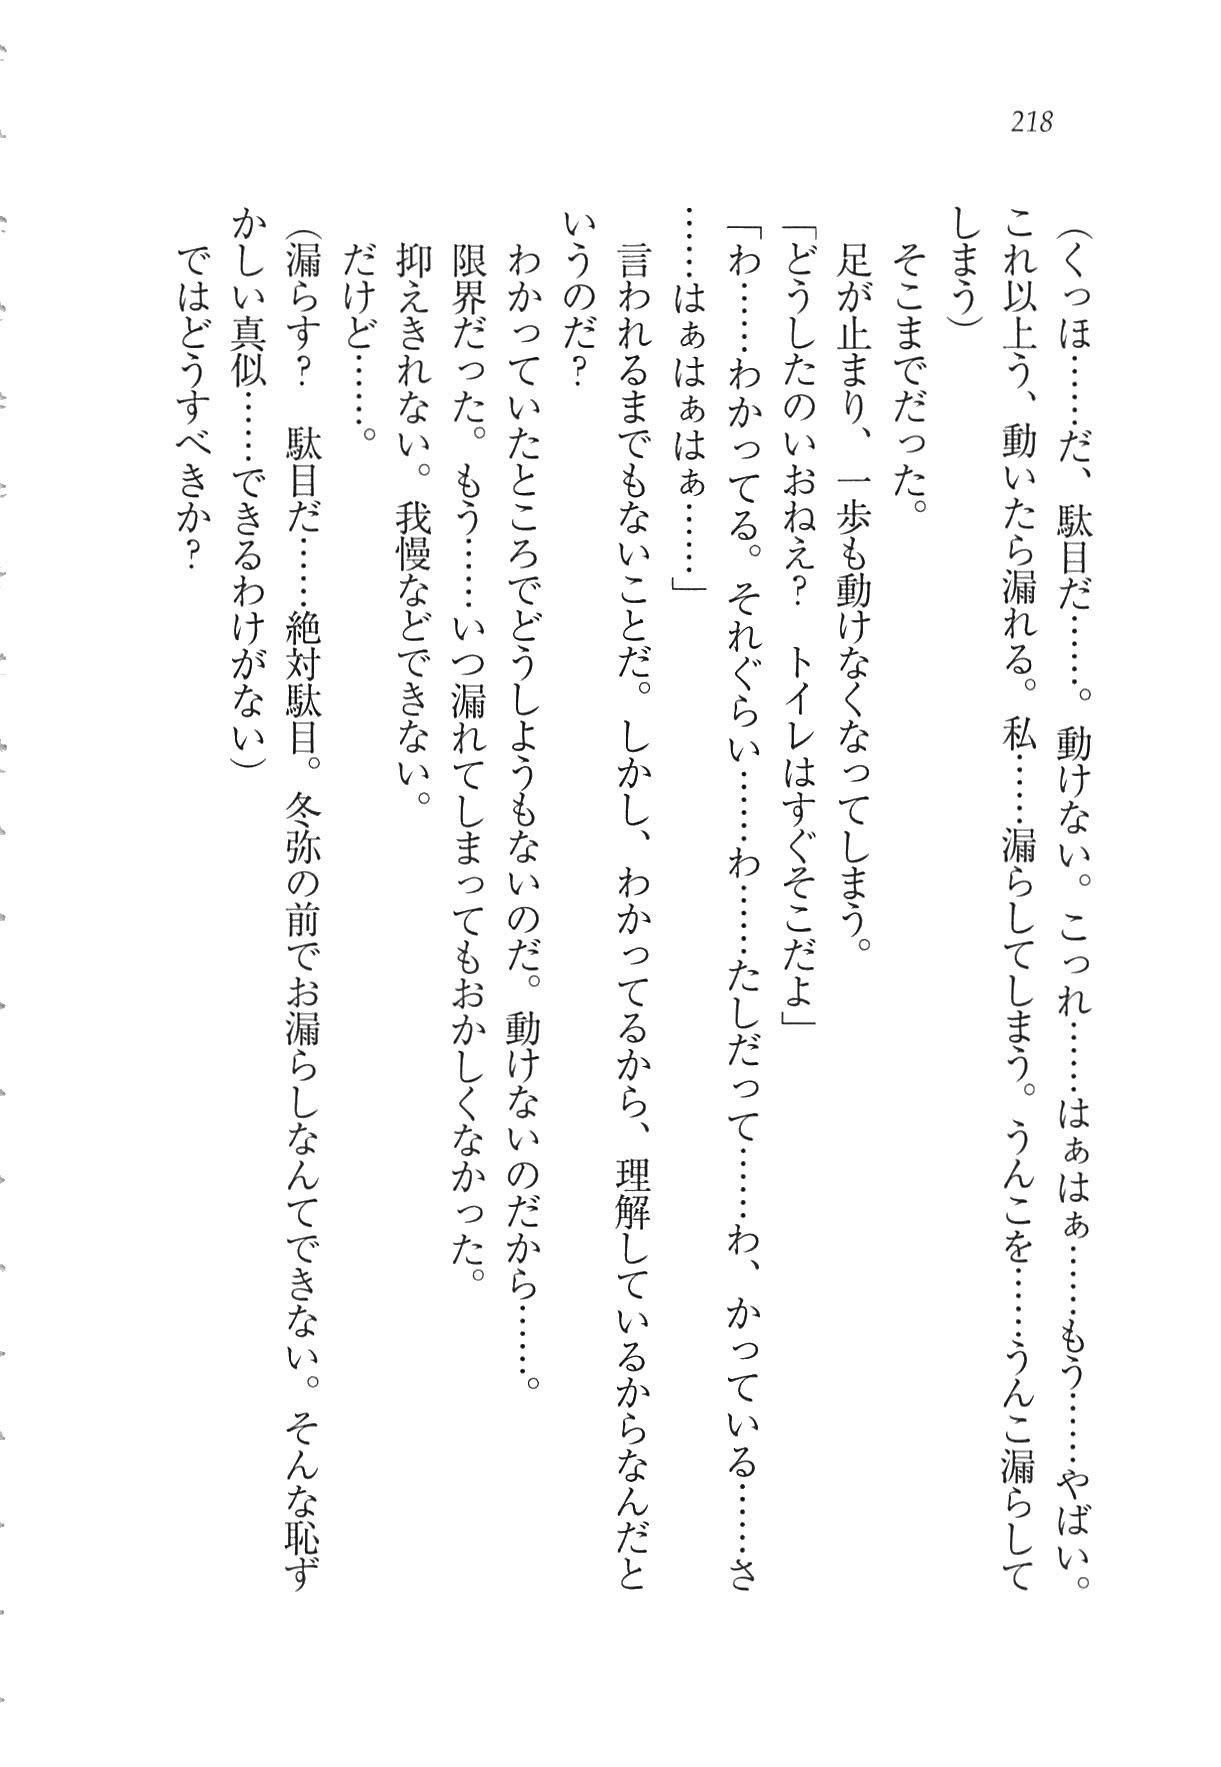 218
（くっほ……だ、駄目だ……。動けない。こっれ……はぁはぁ……もう……やばい。
これ以上う、動いたら漏れる。私……漏らしてしまう。うんこを……うんこ漏らして
しまう）
そこまでだった。
足が止まり、一歩も動けなくなってしまう。
「どうしたのいおねえ？　トイレはすぐそこだよ」
「わ……わかってる。それぐらい……わ……たしだって……わ、かっている……さ
……はぁはぁはぁ……」
言われるまでもないことだ。しかし、わかってるから、理解しているからなんだと
いうのだ？
わかっていたところでどうしようもないのだ。動けないのだから……。
限界だった。もう……いつ漏れてしまってもおかしくなかった。
抑えきれない。我慢などできない。
だけど……。
（漏らす？　駄目だ……絶対駄目。冬弥の前でお漏らしなんてできない。そんな恥ず
かしい真似……できるわけがない）
ではどうすべきか？